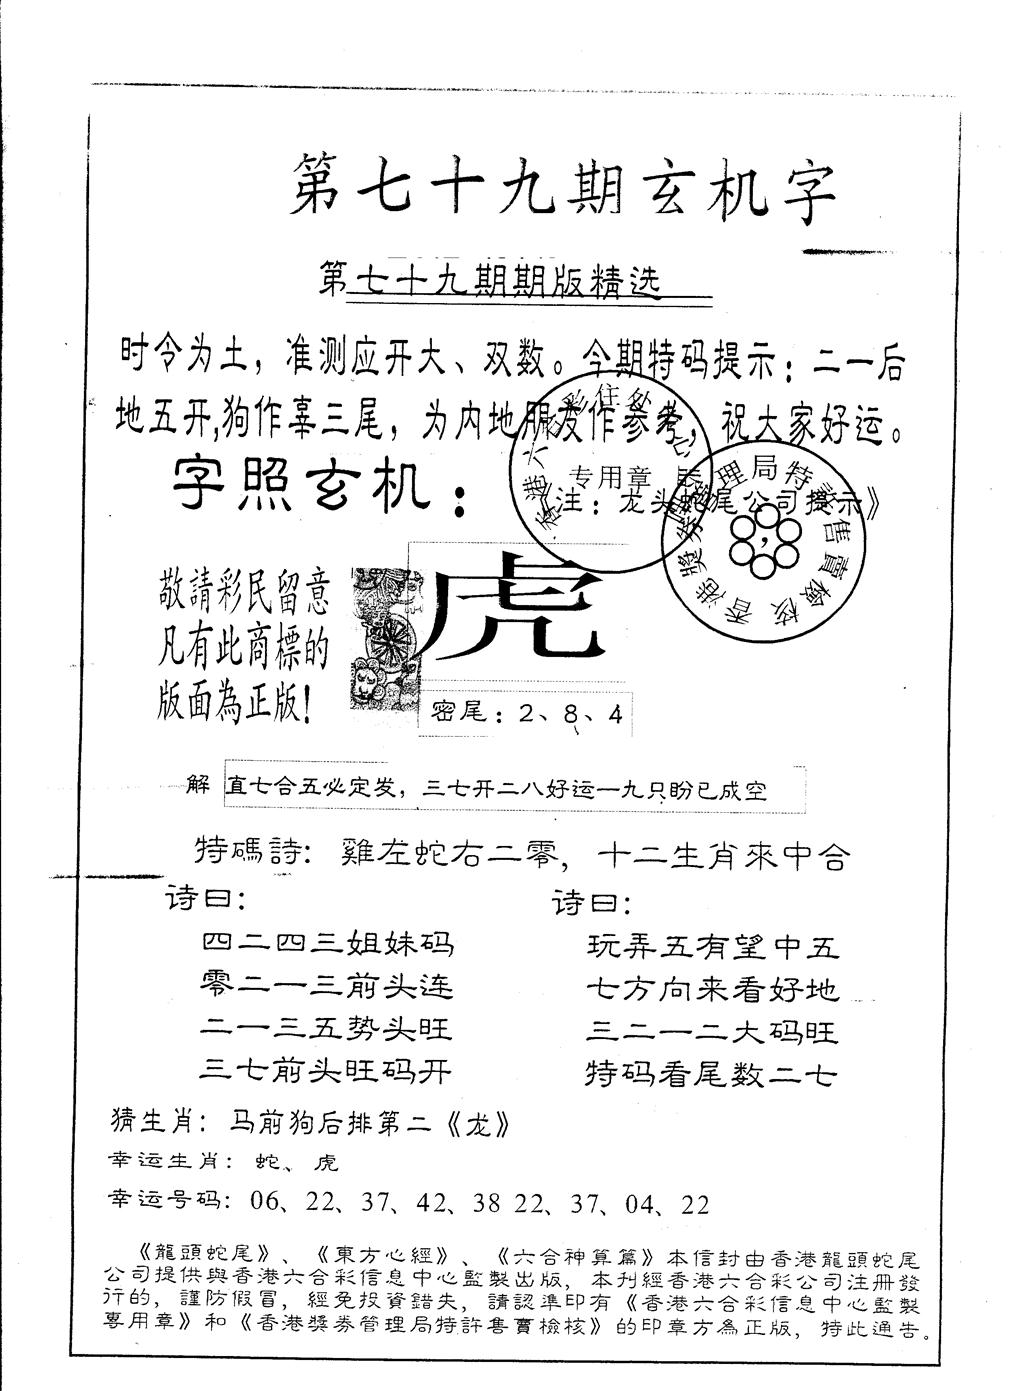 第七十九期玄机字
第七十九期期版精选
时令为土，准测应开大、双数。今期特码提示：二一后
地五开,狗作辜三尾，为内地朋友作参考，祝大家好运。
字照玄机：
注：龙头蛇尾公司提示》
香港六合彩住处
专用章
香港獎券管理局特許售賣檢核
敬請彩民留意
凡有此商標的
版面為正版！
虎
密尾：2、8、4
解 直七合五必定发，三七开二八好运一九只盼已成空
特碼詩：雞左蛇右二零，十二生肖來中合
诗曰：
四二四三姐妹码
零二一三前头连
二一三五势头旺
三七前头旺码开
诗曰：
玩弄五有望中五
七方向来看好地
三二一二大码旺
特码看尾数二七
猜生肖：马前狗后排第二《龙》
幸运生肖：蛇、虎
幸运号码：06、22、37、42、38 22、37、04、22
《龍頭蛇尾》、《東方心經》、《六合神算篇》本信封由香港龍頭蛇尾
公司提供與香港六合彩信息中心監製出版，本刊經香港六合彩公司注冊發
行的，謹防假冒，經免投資錯失，請認準印有《香港六合彩信息中心監製
專用章》和《香港獎券管理局特許售賣檢核》的印章方為正版，特此通告。